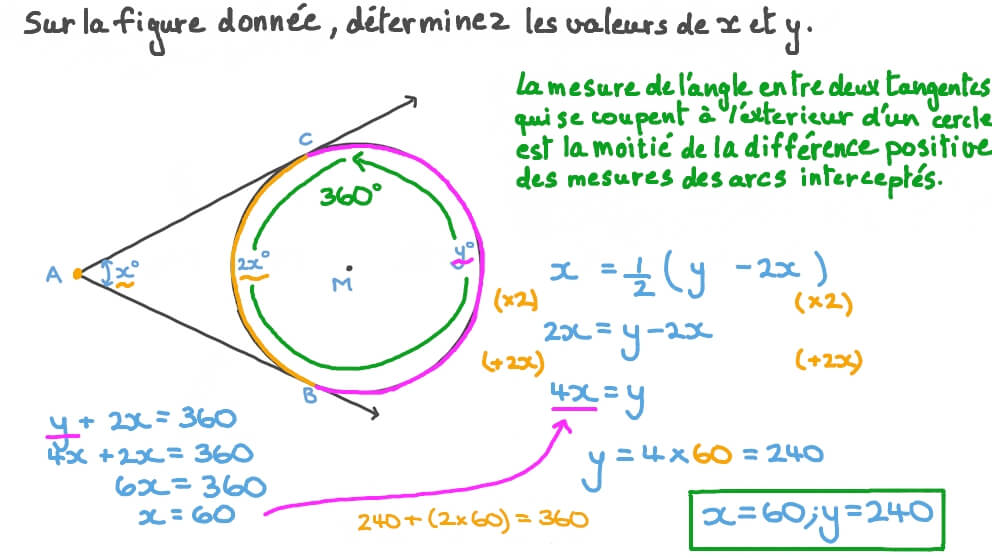 Sur la figure donnée, déterminez les valeurs de x et y.
la mesure de l'angle entre deux tangentes
qui se coupent à l'éxterieur d'un cercle
est la moitié de la différence positive
des mesures des arcs interceptés.
C
360°
A
x°
2x°
M
y°
B
x = 1/2 (y - 2x)
(×2) (×2)
2x = y - 2x
(+2x) (+2x)
4x = y
y = 4 × 60 = 240
y + 2x = 360
4x + 2x = 360
6x = 360
x = 60
240 + (2×60) = 360
x = 60; y = 240